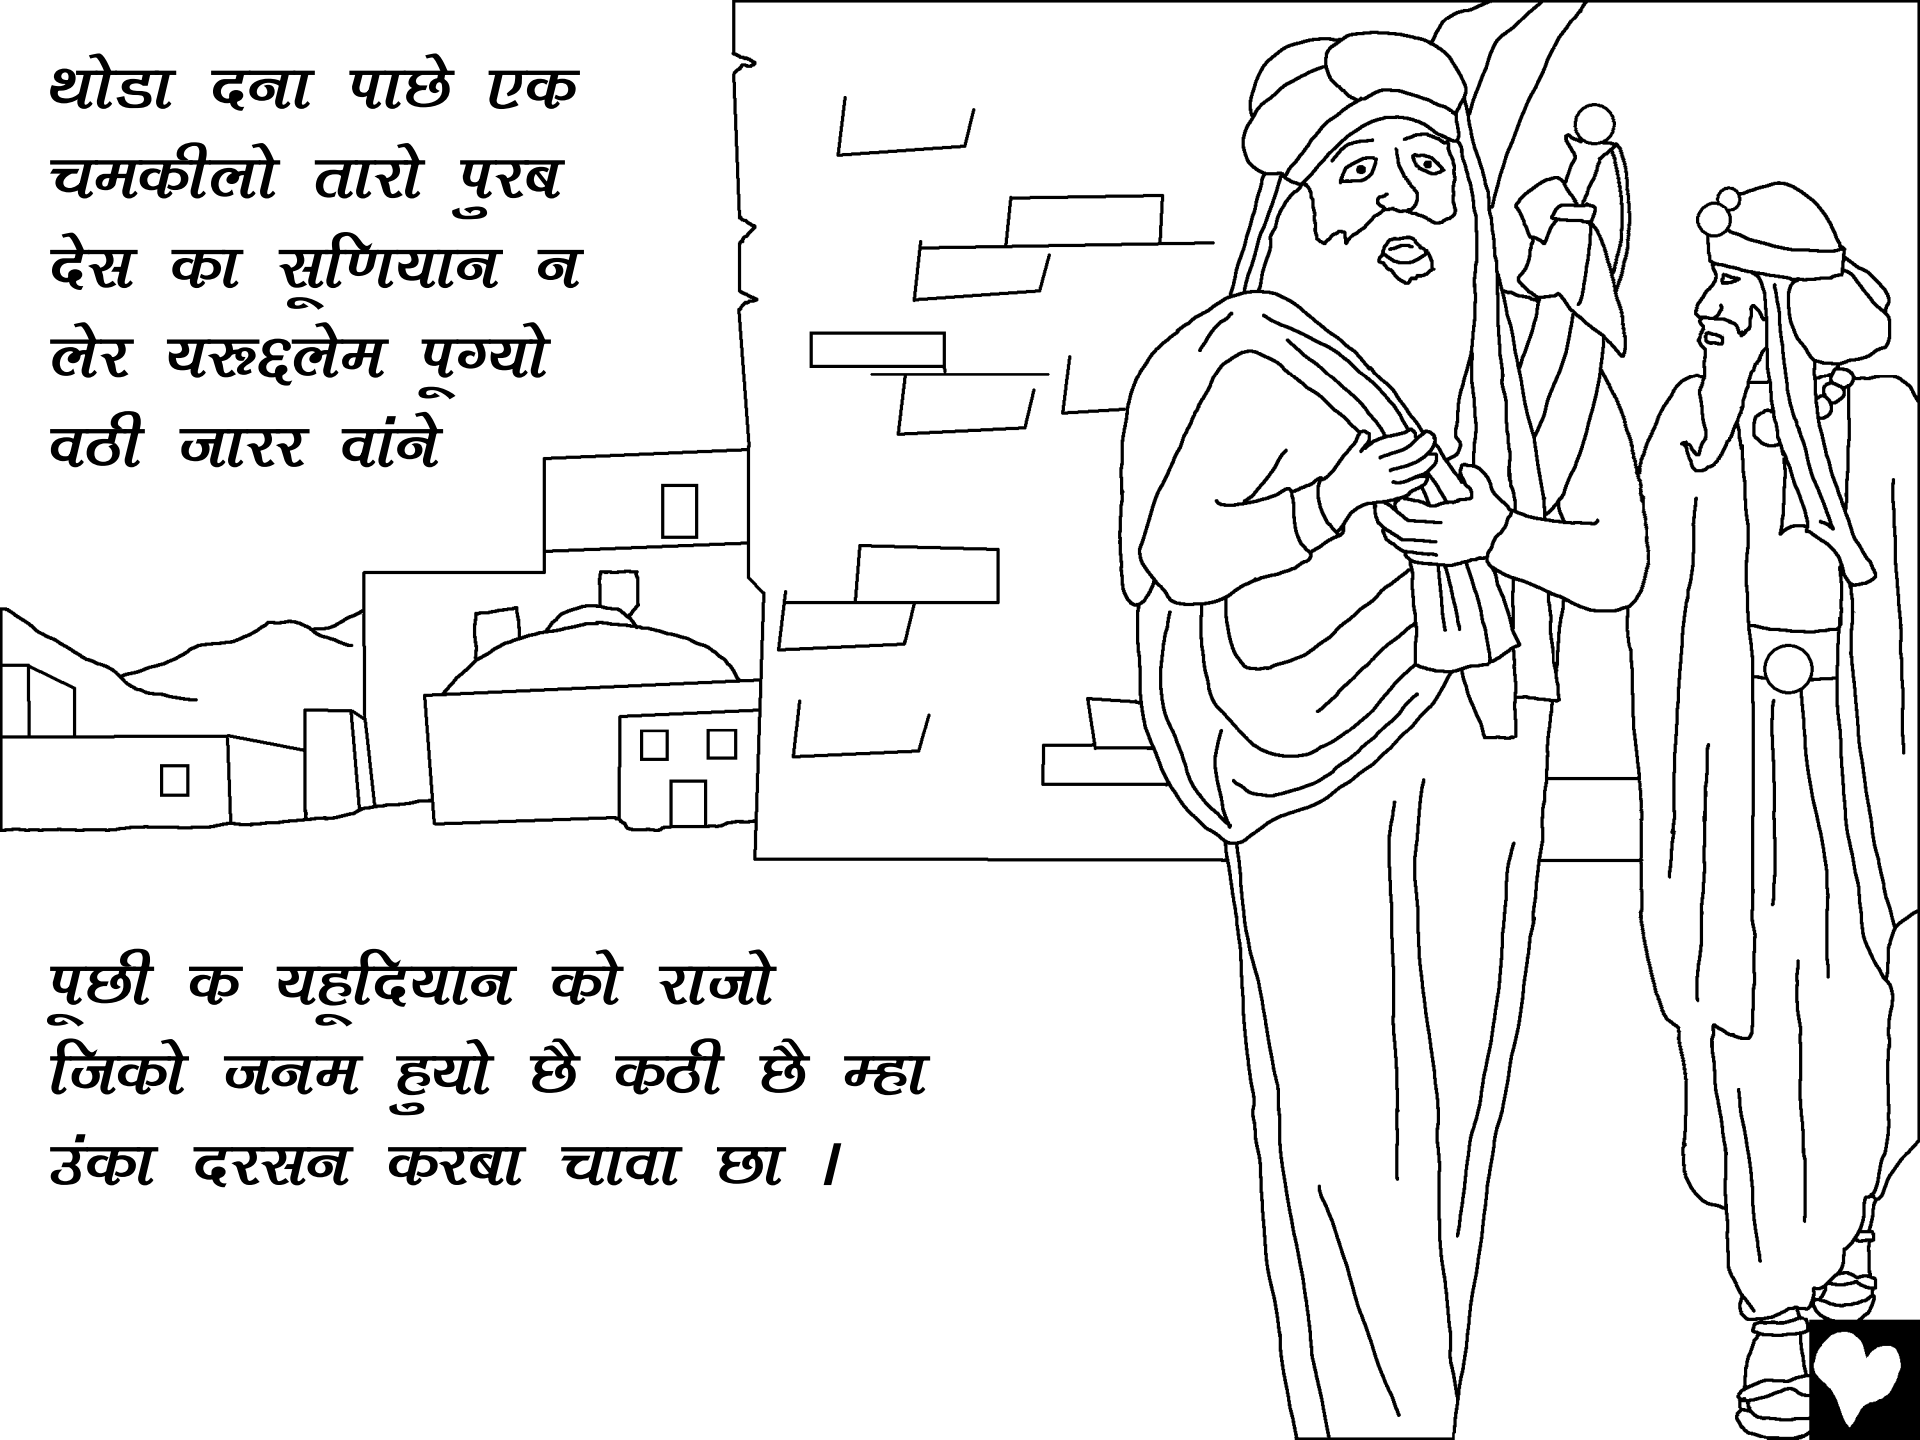 थोडा दना पाछे एक
चमकीलो तारो पुरब
देस का सूणियान न
लेर यरू६लेम पूग्यो
वठी जारर वांने
पूछी क यहूदियान को राजो
जिको जनम हुयो छै कठी छै म्हा
उंका दरसन करबा चावा छा ।